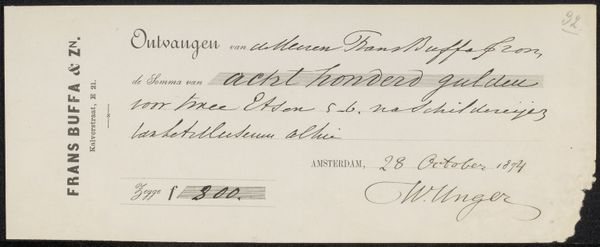 92
FRANS BUFFA & ZN.
Kalverstraat, E 21.
Ontvangen van de Heeren Frans Buffa & Zoon,
de Somma van acht honderd gulden
voor twee Etsen naar schilderijen
van het Museum alhier
AMSTERDAM, 28 October 1874
Zegge f 800.
W. Unger